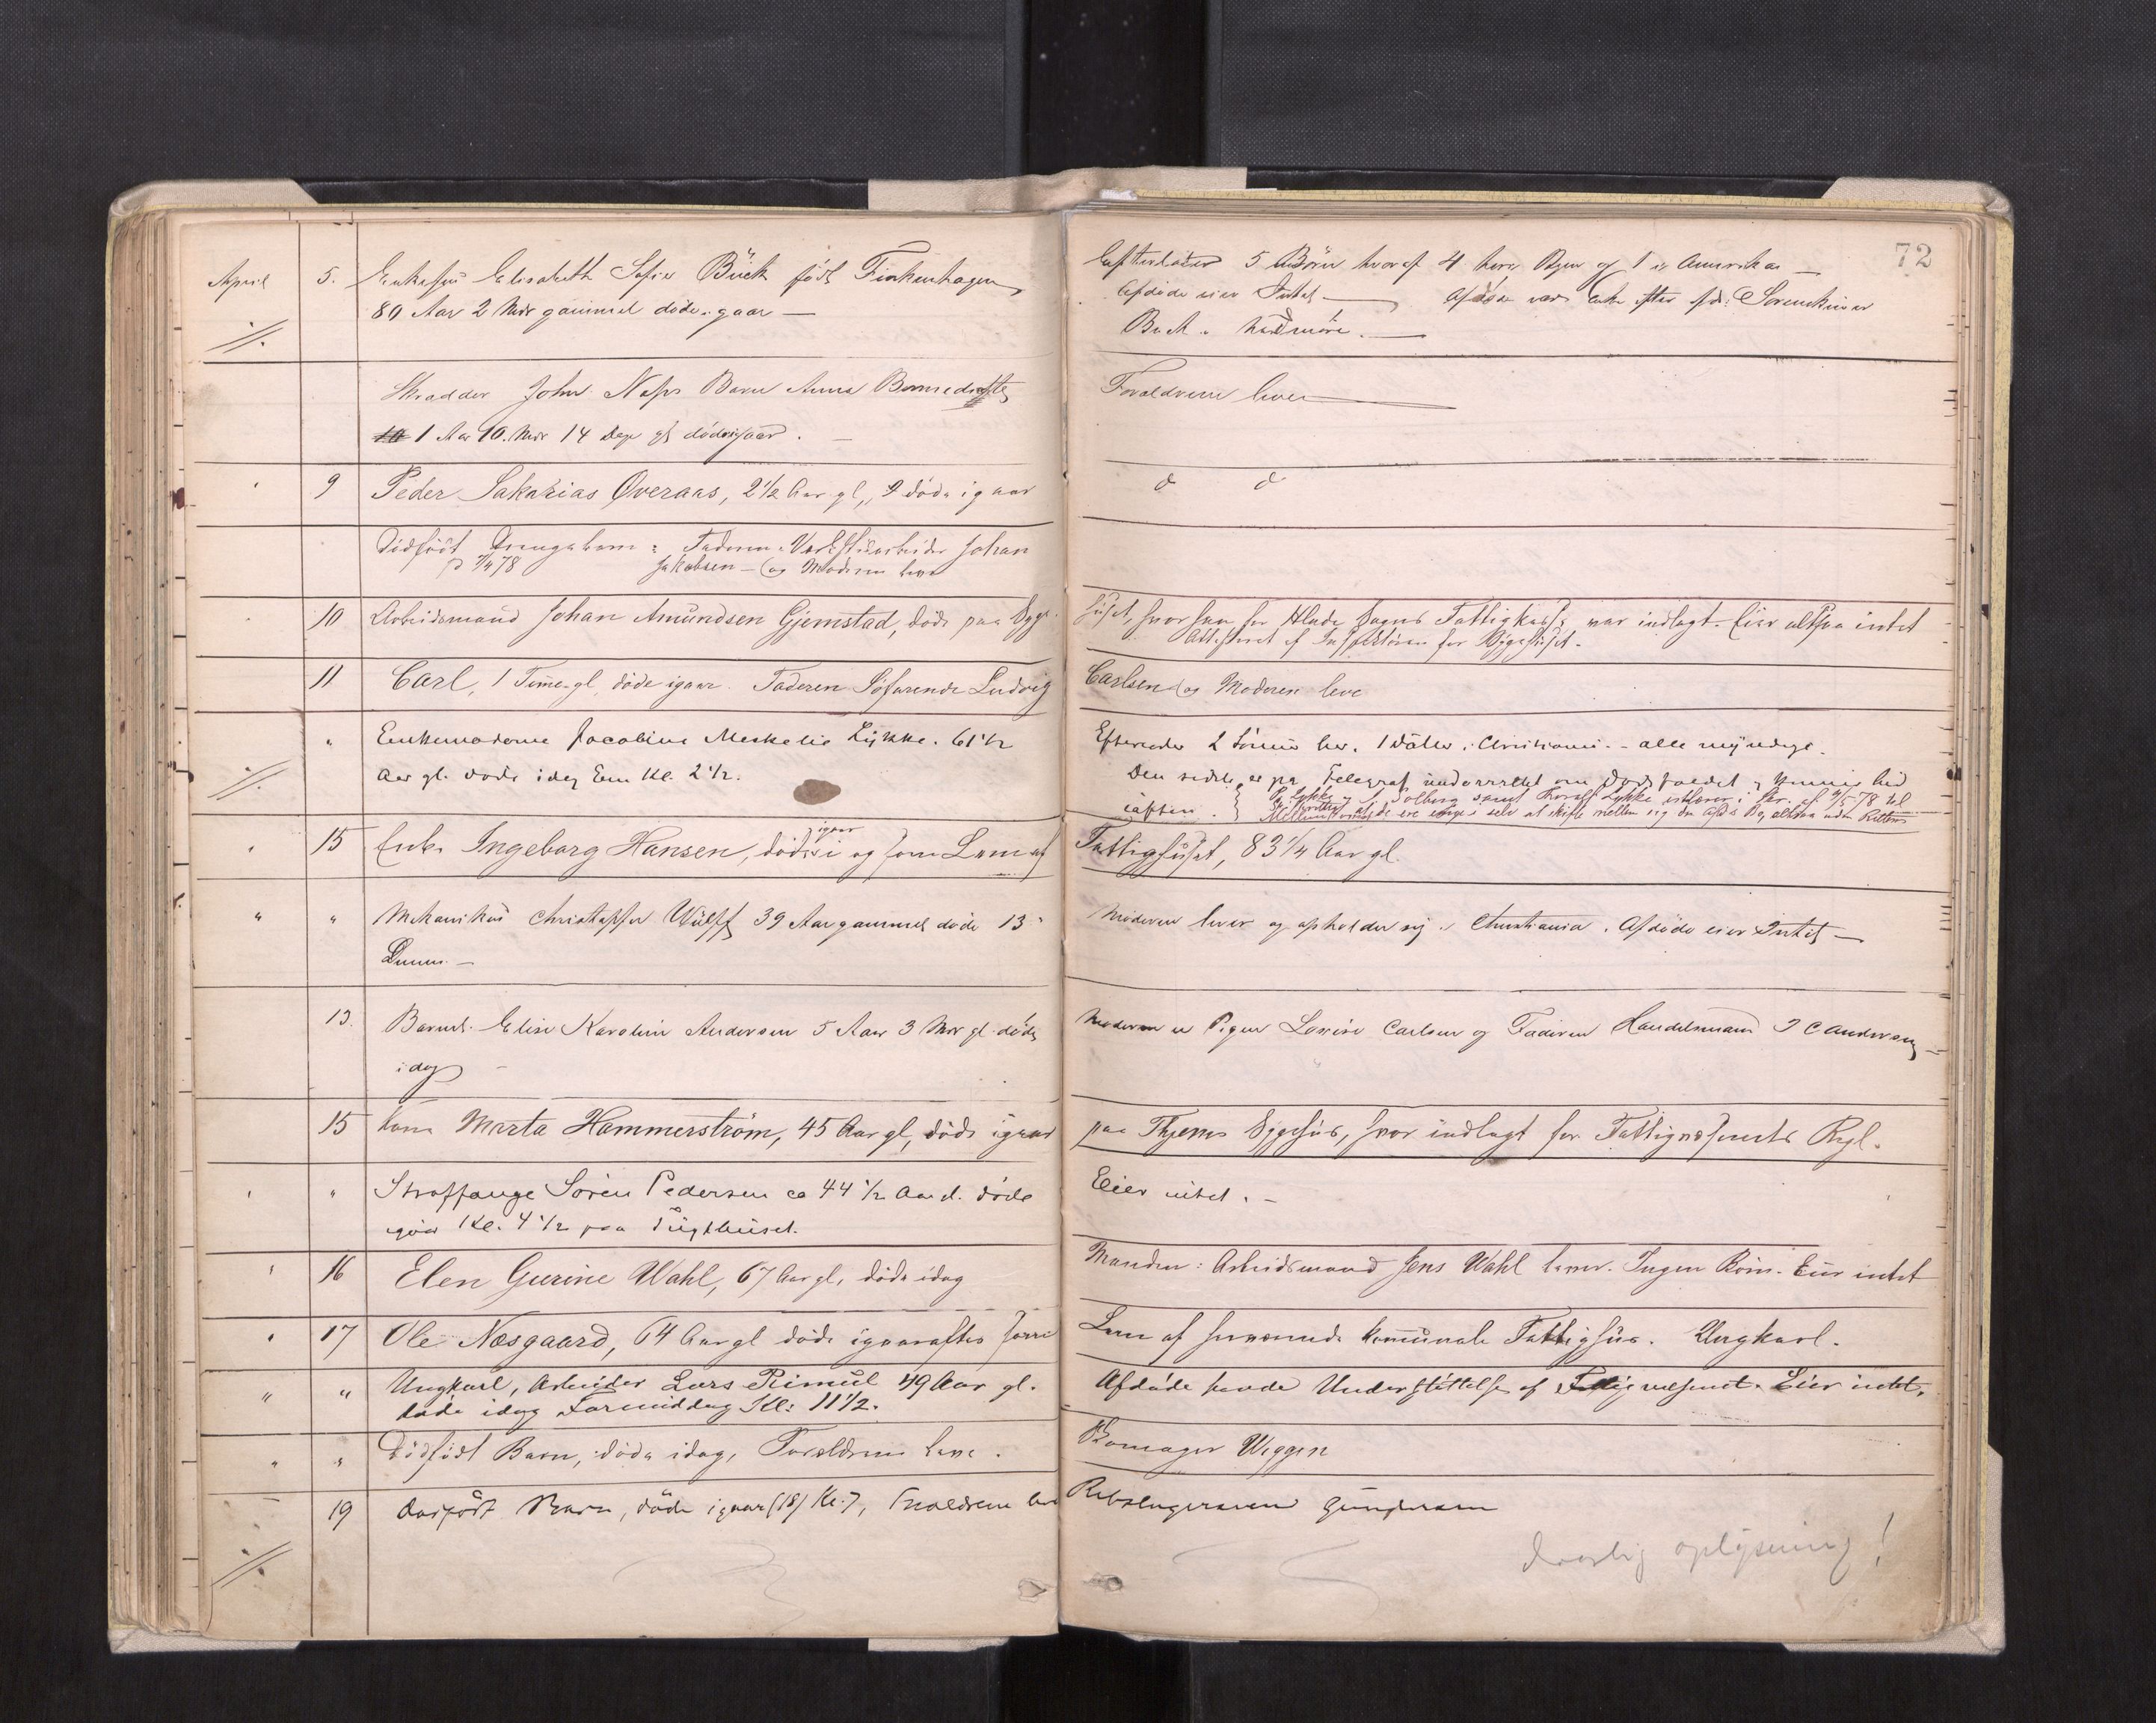 72
April 5. Enkefru Elisabeth Sofie Bück født Finkenhagen
80 Aar 2 Mdr gammel døde igaar —
Efterlader 5 Børn hvoraf 4 her i Byen og 1 i Amerika —
Afdøde eier Intet — Afdøde var Enke efter afd: Sorenskriver
Buck i Nordmøre. —
Skradder John Næss Barn Anna Bennedikte
1 Aar 10 Mdr 14 Dage gl døde igaar. —
Forældrene lever
9 Peder Sakarias Øveraas, 2½ Aar gl, døde igaar
d d
Dødfødt Drengebarn: Faderen Verkstedarbeider Johan
p 7/4 78 Jakobsen — og Moderen leve
10 Arbeidsmand Johan Amundsen Gjemstad, døde paa Syge-
huset, hvor han for Hlade Sogns Fattigkasse var indlagt. Eier altsaa intet
Attesteret af Inspektøren for Sygehuset.
11 Carl, 1 Time gl, døde igaar. Faderen Søfarende Ludvig
Carlsen og Moderen leve
" Enkemadame Jacobine Meskelie Lykke. 61½
Aar gl. døde idag Em Kl. 2½.
Efterlader 2 Sønner her. 1 Datter i Christiania. — alle myndige.
Den sidste er pr Telegraf underrettet om Dødsfaldet
iaften.
15 Enke Ingeborg Hansen, døde igaar og som Lem af
Fattighuset, 83¼ Aar gl.
" " Mekanikus Christopher Wulff 39 Aar gammel døde 13
Dennes. —
Moderen lever og opholder sig i Christiania. Afdøde eier Intet —
13. Barnet Elise Karoline Andersen 5 Aar 3 Mdr gl. døde
idag —
Moderen er Pigen Lovise Carlsen og Faderen Handelsmand J C Andersen —
15 Kone Marta Hammerström, 45 Aar gl, døde igaar
paa Thjems Sygehus, hvor indlagt for Fattigvæsenets Regl.
" Straffange Sören Pedersen ca 44½ Aar gl. døde
igaar Kl. 4½ paa Tugthuset.
Eier intet. —
16 Elen Gurine Wahl, 67 Aar gl, døde idag
Manden: Arbeidsmand Jens Wahl lever. Ingen Børn. Eier intet
17 Ole Næsgaard, 64 Aar gl døde igaaraftes som
Lem af herværende kommunale Fattighus. Ungkarl.
" " Ungkarl, Arbeider Lars Rimul 49 Aar gl.
døde idag Formiddag Kl: 11½.
Afdøde havde Understøttelse af Fattigvæsenet. Eier intet.
" " Dødfødt Barn, døde idag, Forældrene leve.
Skomager Wiggen
19 Dødfødt Barn, døde igaar (18) Kl. 7, Forældrene leve
Rebslagersvend Gundersen
daarlig oplysning!